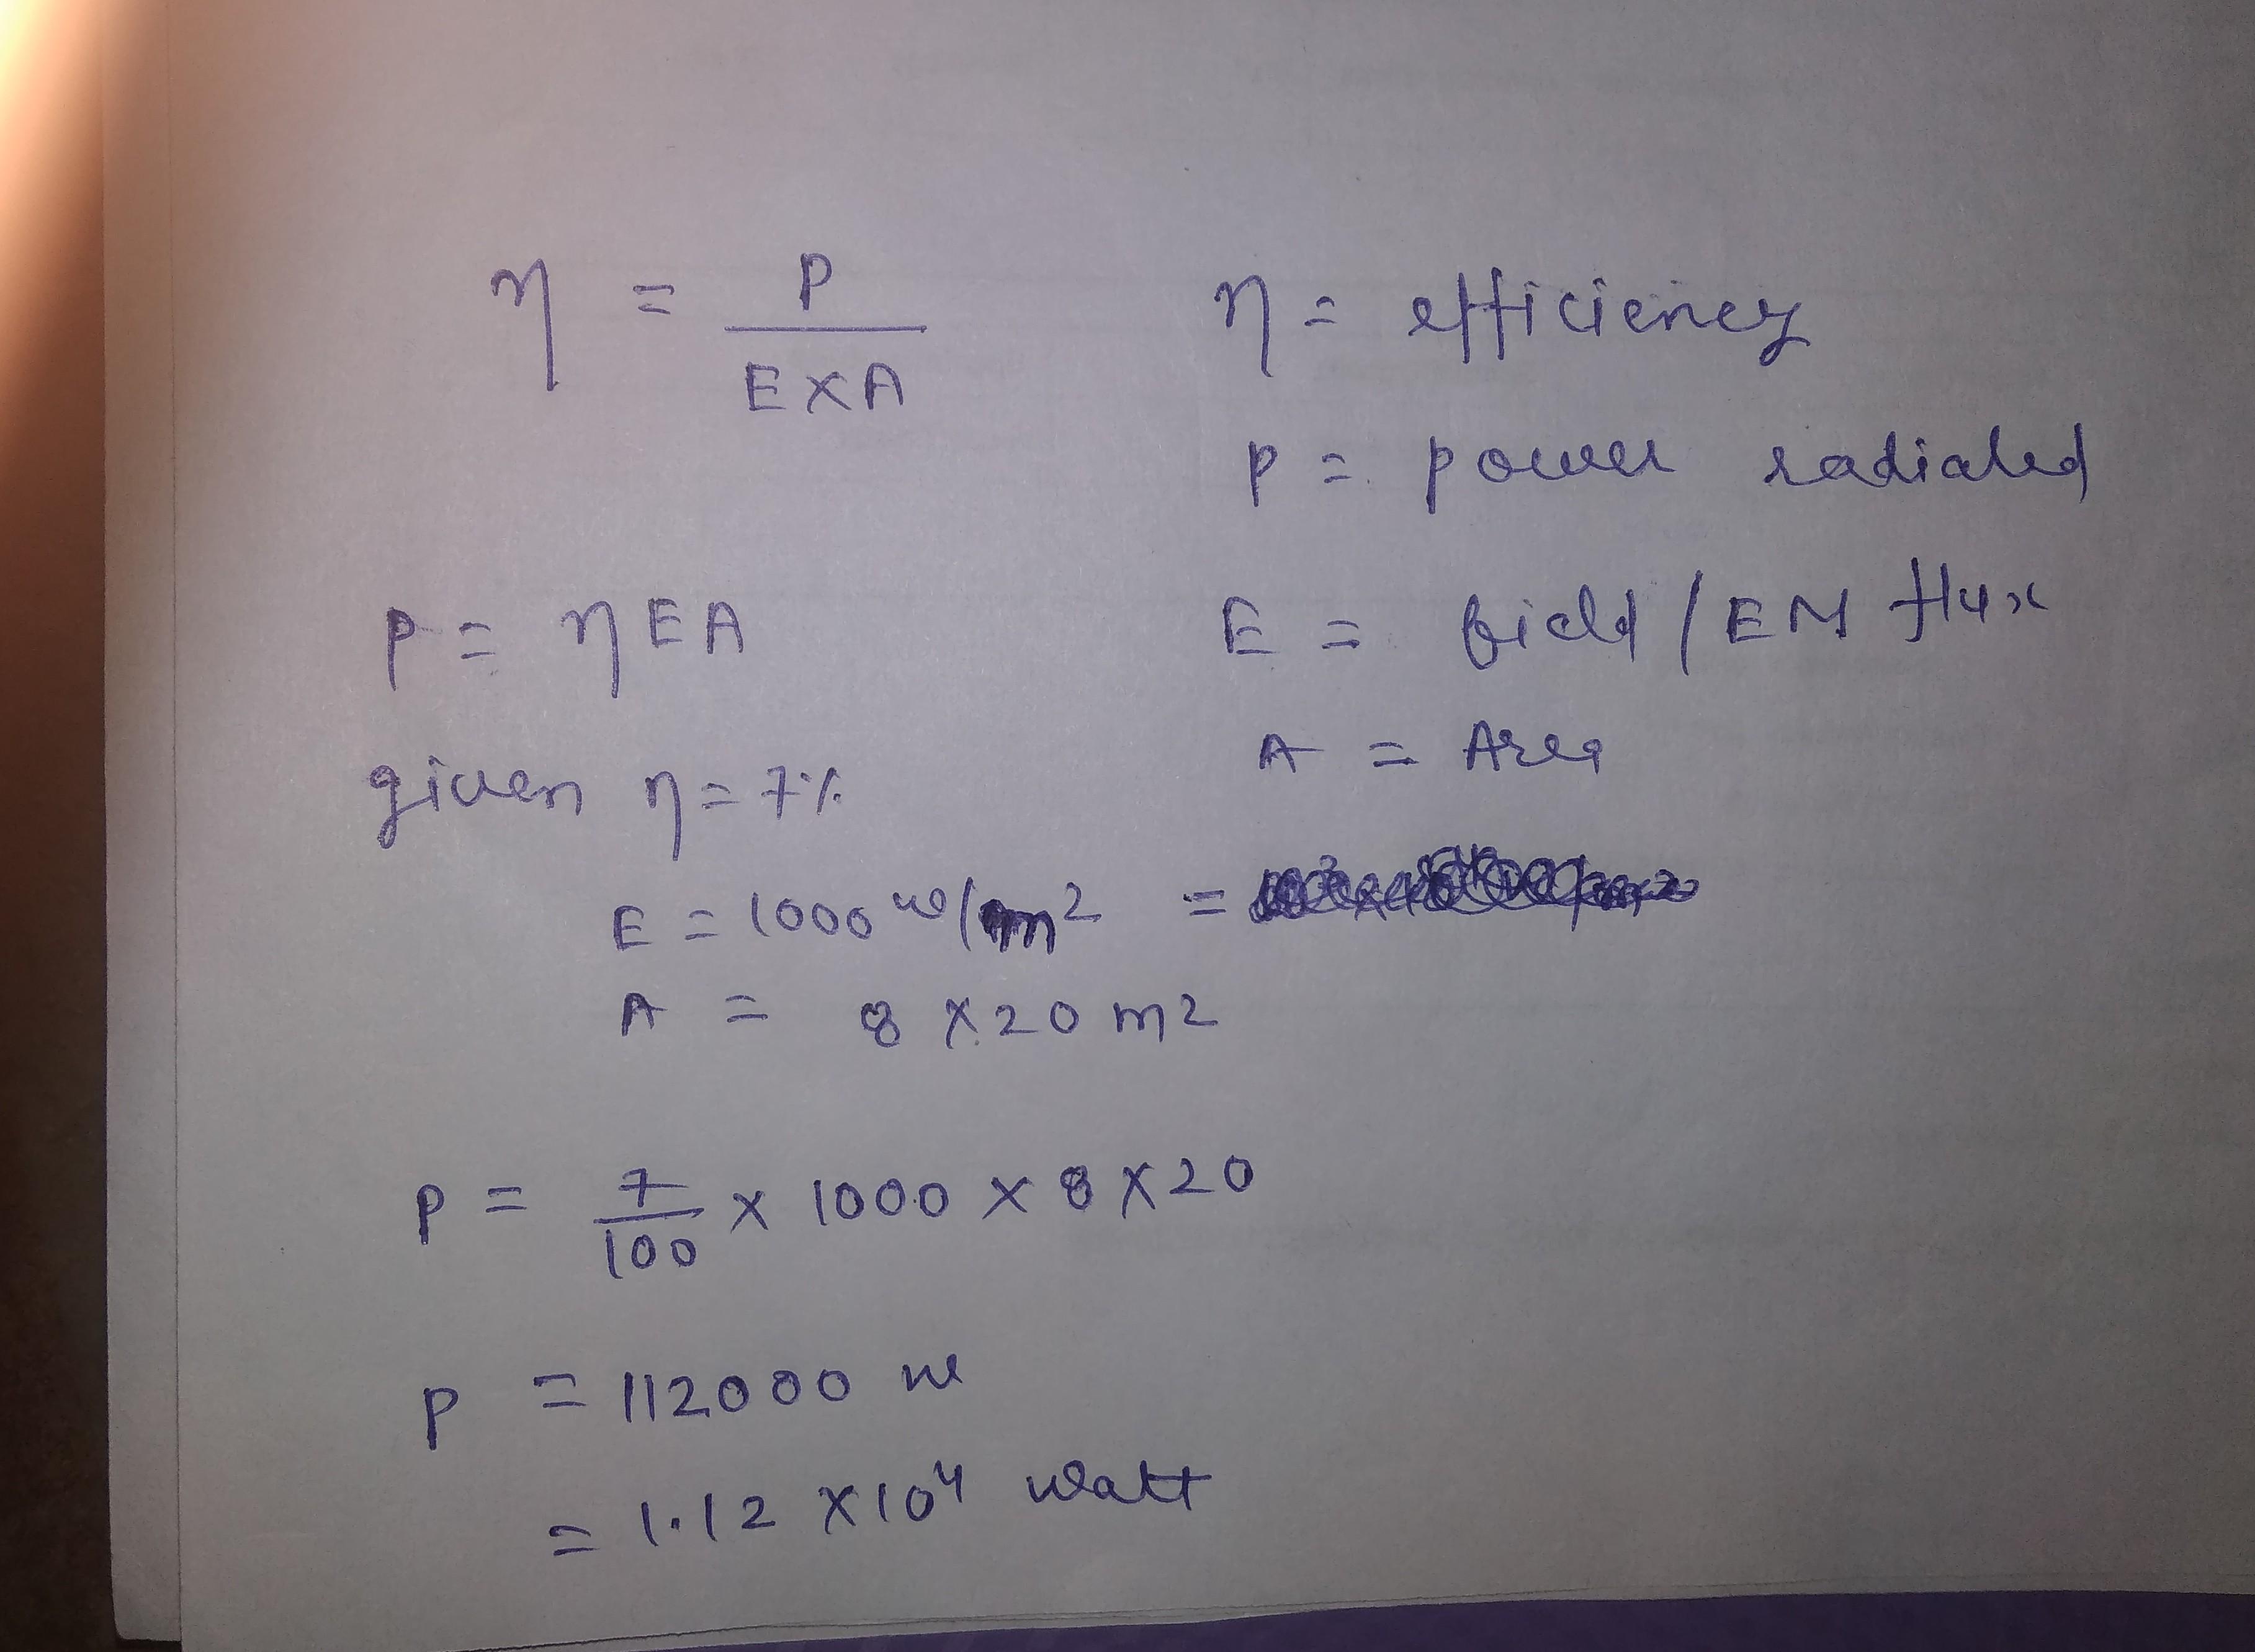 η = P / E×A
η = efficiency
P = power radiated
P = ηEA
E = field / EM flux
A = Area
given η = 7%
E = 1000 w/m² =
A = 8 × 20 m2
P = 7/100 × 1000 × 8 × 20
P = 112000 w
= 1.12 × 10⁴ watt